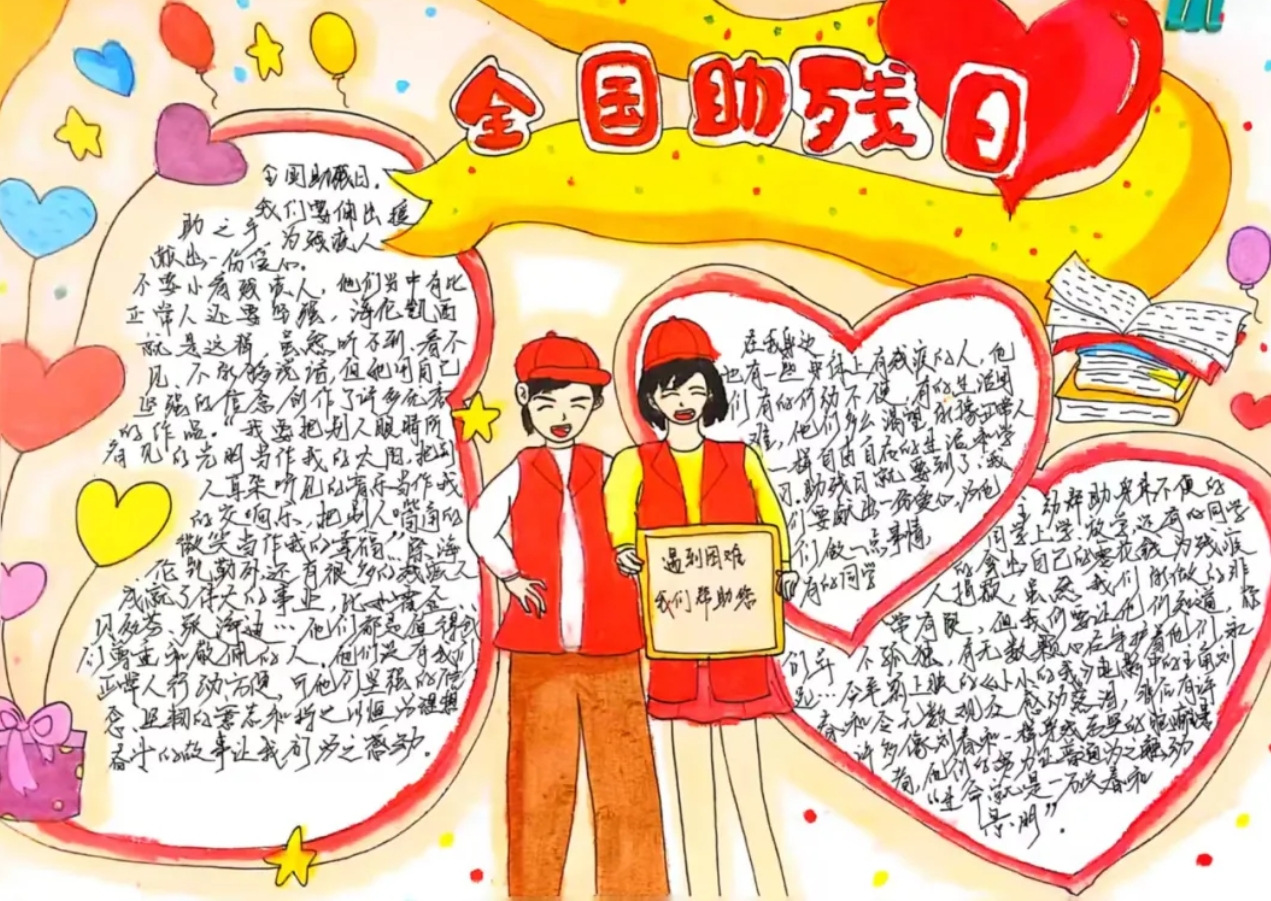 全国助残日
全国助残日，
我们要伸出援
助之手，为残疾人
献出一份爱心。
不要小看残疾人，他们当中有比
正常人还要坚强，海伦凯西
就是这样，虽然听不到、看不
见、不能够说话，但她用自己
坚强的信念，创作了许多优秀
的作品。“我要把别人眼睛所
看见的光明当作我的太阳，把别
人耳朵听见的音乐当作我
的交响乐，把别人嘴角的
微笑当作我的幸福”。除海
伦凯勒外还有很多的残疾人
成就了伟大的事业，比如霍金、
贝多芬、张海迪…他们都是值得我
们尊重和敬佩的人。他们没有我们
正常人行动方便，可他们坚强的信
念、坚韧的意志和持之以恒的
奋斗的故事让我们为之感动。
在我身边
也有一些身体上有残疾的人，他
们有的行动不便，有的生活困
难，他们多么渴望能像正常人
一样自由自在的生活和学
习。助残日就要到了，我
们要献出一份爱心，为他
们做一点事情，
有的同学
主动帮助身体不便的
同学上学、放学，还有的同学
会出自己的零花钱为残疾
人捐款。虽然，我们所做的非
常有限，但我们要让他们知道，你
们并不孤独，有无数颗心在守护着他们
今年前上映的《小小的我》电影中的主角刘
春和令无数观众感动落泪，
许多像刘春和一样身残志坚的
者，他们的努力让普通为之触动
“生命就是一万次春和
景明”。
遇到困难
我们帮助您